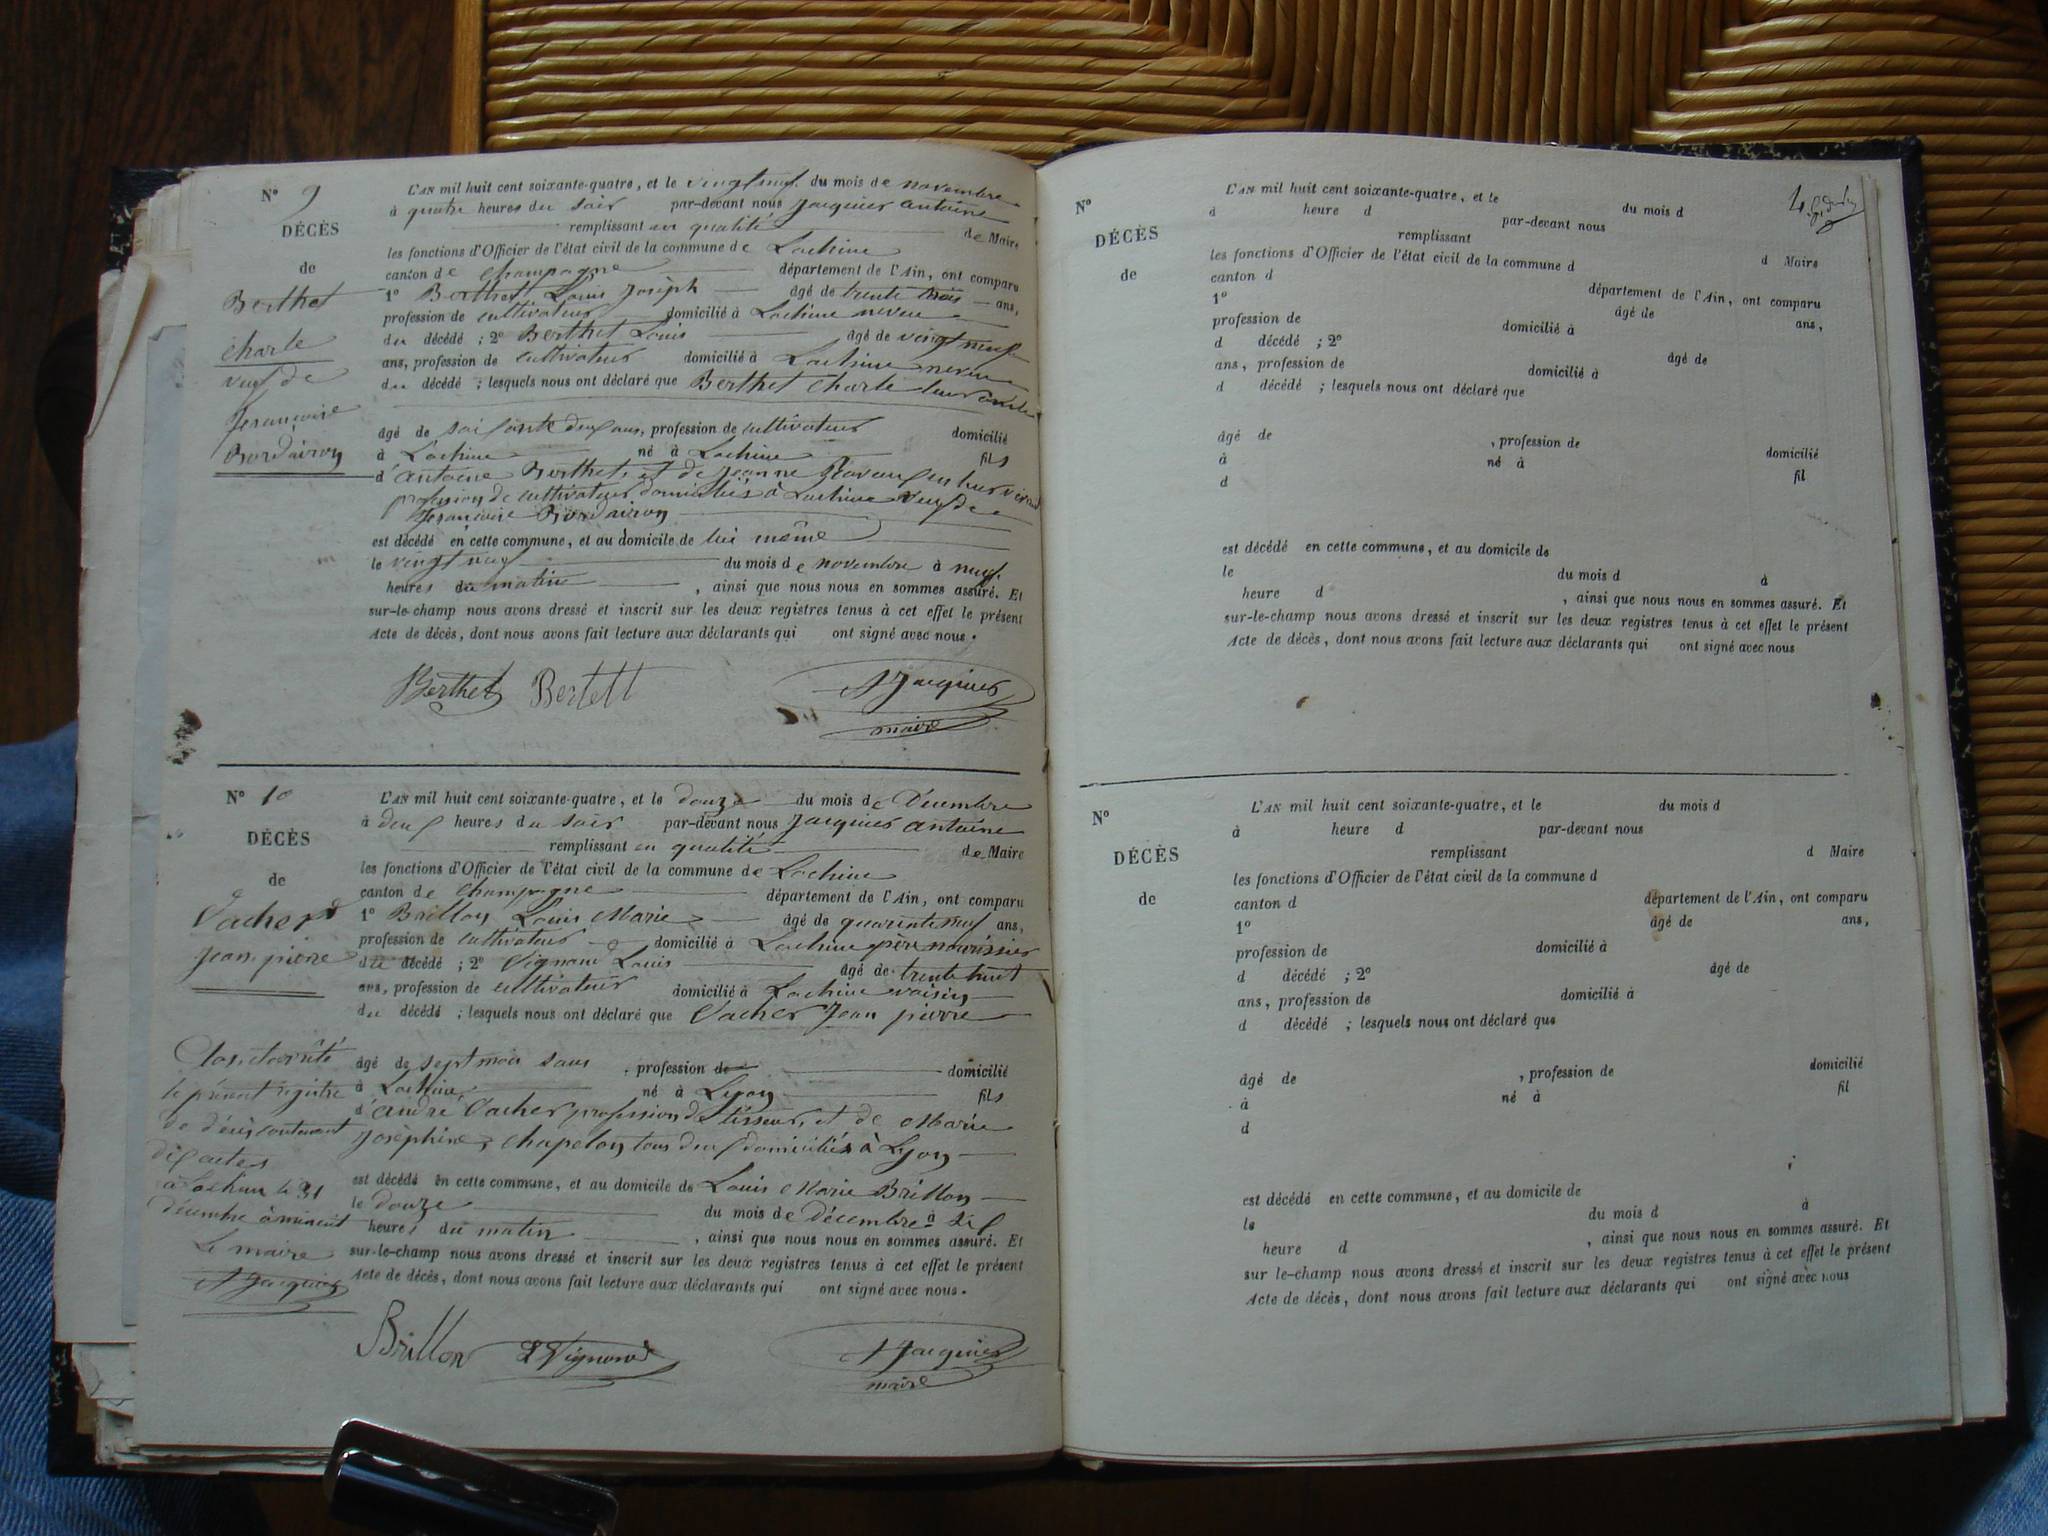 N° 9
DÉCÈS
de
Berthet
charle
veuf de
françoise
Bordairon
L'AN mil huit cent soixante-quatre, et le vingt neuf du mois de novembre
à quatre heures du soir par-devant nous Jacquier antoine
remplissant en qualité de Maire
les fonctions d'Officier de l'état civil de la commune de Lochieu
canton de champagne département de l'Ain, ont comparu
1° Berthet Louis Joseph âgé de trente trois ans,
profession de cultivateur domicilié à Lochieu neveu
du décédé ; 2° Berthet Louis âgé de vingt neuf
ans, profession de cultivateur domicilié à Lochieu neveu
du décédé ; lesquels nous ont déclaré que Berthet charle leur oncle
âgé de soisante deux ans, profession de cultivateur domicilié
à Lochieu né à Lochieu fils
d'antoine Berthet, et de jeanne
profession de cultivateur domiciliés à Lochieu veuf de
françoise Bordairon
est décédé en cette commune, et au domicile de lui même
le vingt neuf du mois de novembre à neuf
heures du matin , ainsi que nous nous en sommes assuré. Et
sur-le-champ nous avons dressé et inscrit sur les deux registres tenus à cet effet le présent
Acte de décès, dont nous avons fait lecture aux déclarants qui ont signé avec nous.
Berthet Bertett A Jacquier
maire
N° 10
DÉCÈS
de
Vacher
jean pierre
L'AN mil huit cent soixante-quatre, et le douze du mois de Décembre
à deux heures du soir par-devant nous Jacquier antoine
remplissant en qualité de Maire
les fonctions d'Officier de l'état civil de la commune de Lochieu
canton de champagne département de l'Ain, ont comparu
1° Brillon Louis Marie âgé de quarante neuf ans,
profession de cultivateur domicilié à Lochieu père nourissier
du décédé ; 2° Vignond Louis âgé de trente huit
ans, profession de cultivateur domicilié à Lochieu voisin
du décédé ; lesquels nous ont déclaré que Vacher Jean pierre
âgé de sept mois sans , profession de domicilié
à Lochieu né à Lyon fils
d'andré Vacher profession de tisseur, et de Marie
josephine chapelon tous deux domiciliés à Lyon
est décédé en cette commune, et au domicile de Louis Marie Brillon
le douze du mois de Décembre à dix
heures du matin , ainsi que nous nous en sommes assuré. Et
sur-le-champ nous avons dressé et inscrit sur les deux registres tenus à cet effet le présent
Acte de décès, dont nous avons fait lecture aux déclarants qui ont signé avec nous.
Brillon L Vignond A Jacquier
maire
Clos et arrêté
le présent registre
de décès contenant
dix actes
à Lochieu le 31
décembre à minuit
Le maire
A Jacquier
N°
DÉCÈS
de
L'AN mil huit cent soixante-quatre, et le du mois d
à heure d par-devant nous
remplissant d Maire
les fonctions d'Officier de l'état civil de la commune d
canton d département de l'Ain, ont comparu
1° âgé de ans,
profession de domicilié à
d décédé ; 2° âgé de
ans, profession de domicilié à
d décédé ; lesquels nous ont déclaré que
âgé de , profession de domicilié
à né à fil
d
est décédé en cette commune, et au domicile de
le du mois d à
heure d , ainsi que nous nous en sommes assuré. Et
sur-le-champ nous avons dressé et inscrit sur les deux registres tenus à cet effet le présent
Acte de décès, dont nous avons fait lecture aux déclarants qui ont signé avec nous
N°
DÉCÈS
de
L'AN mil huit cent soixante-quatre, et le du mois d
à heure d par-devant nous
remplissant d Maire
les fonctions d'Officier de l'état civil de la commune d
canton d département de l'Ain, ont comparu
1° âgé de ans,
profession de domicilié à
d décédé ; 2° âgé de
ans, profession de domicilié à
d décédé ; lesquels nous ont déclaré que
âgé de , profession de domicilié
à né à fil
d
est décédé en cette commune, et au domicile de
le du mois d à
heure d , ainsi que nous nous en sommes assuré. Et
sur le-champ nous avons dressé et inscrit sur les deux registres tenus à cet effet le présent
Acte de décès, dont nous avons fait lecture aux déclarants qui ont signé avec nous